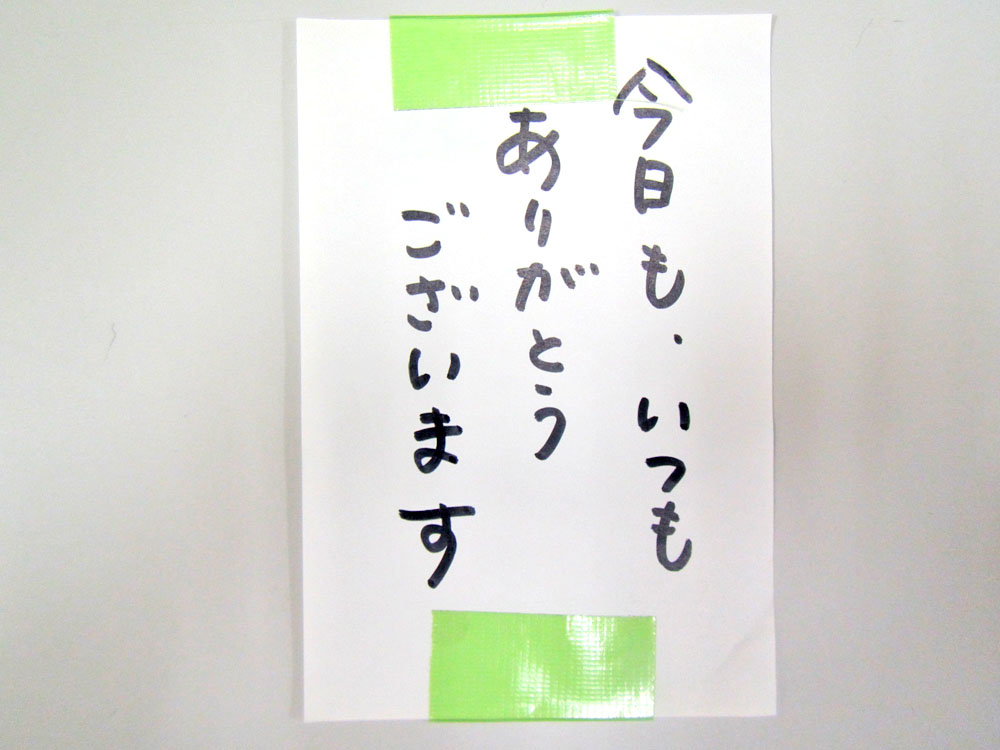 今日も、いつも
ありがとう
ございます